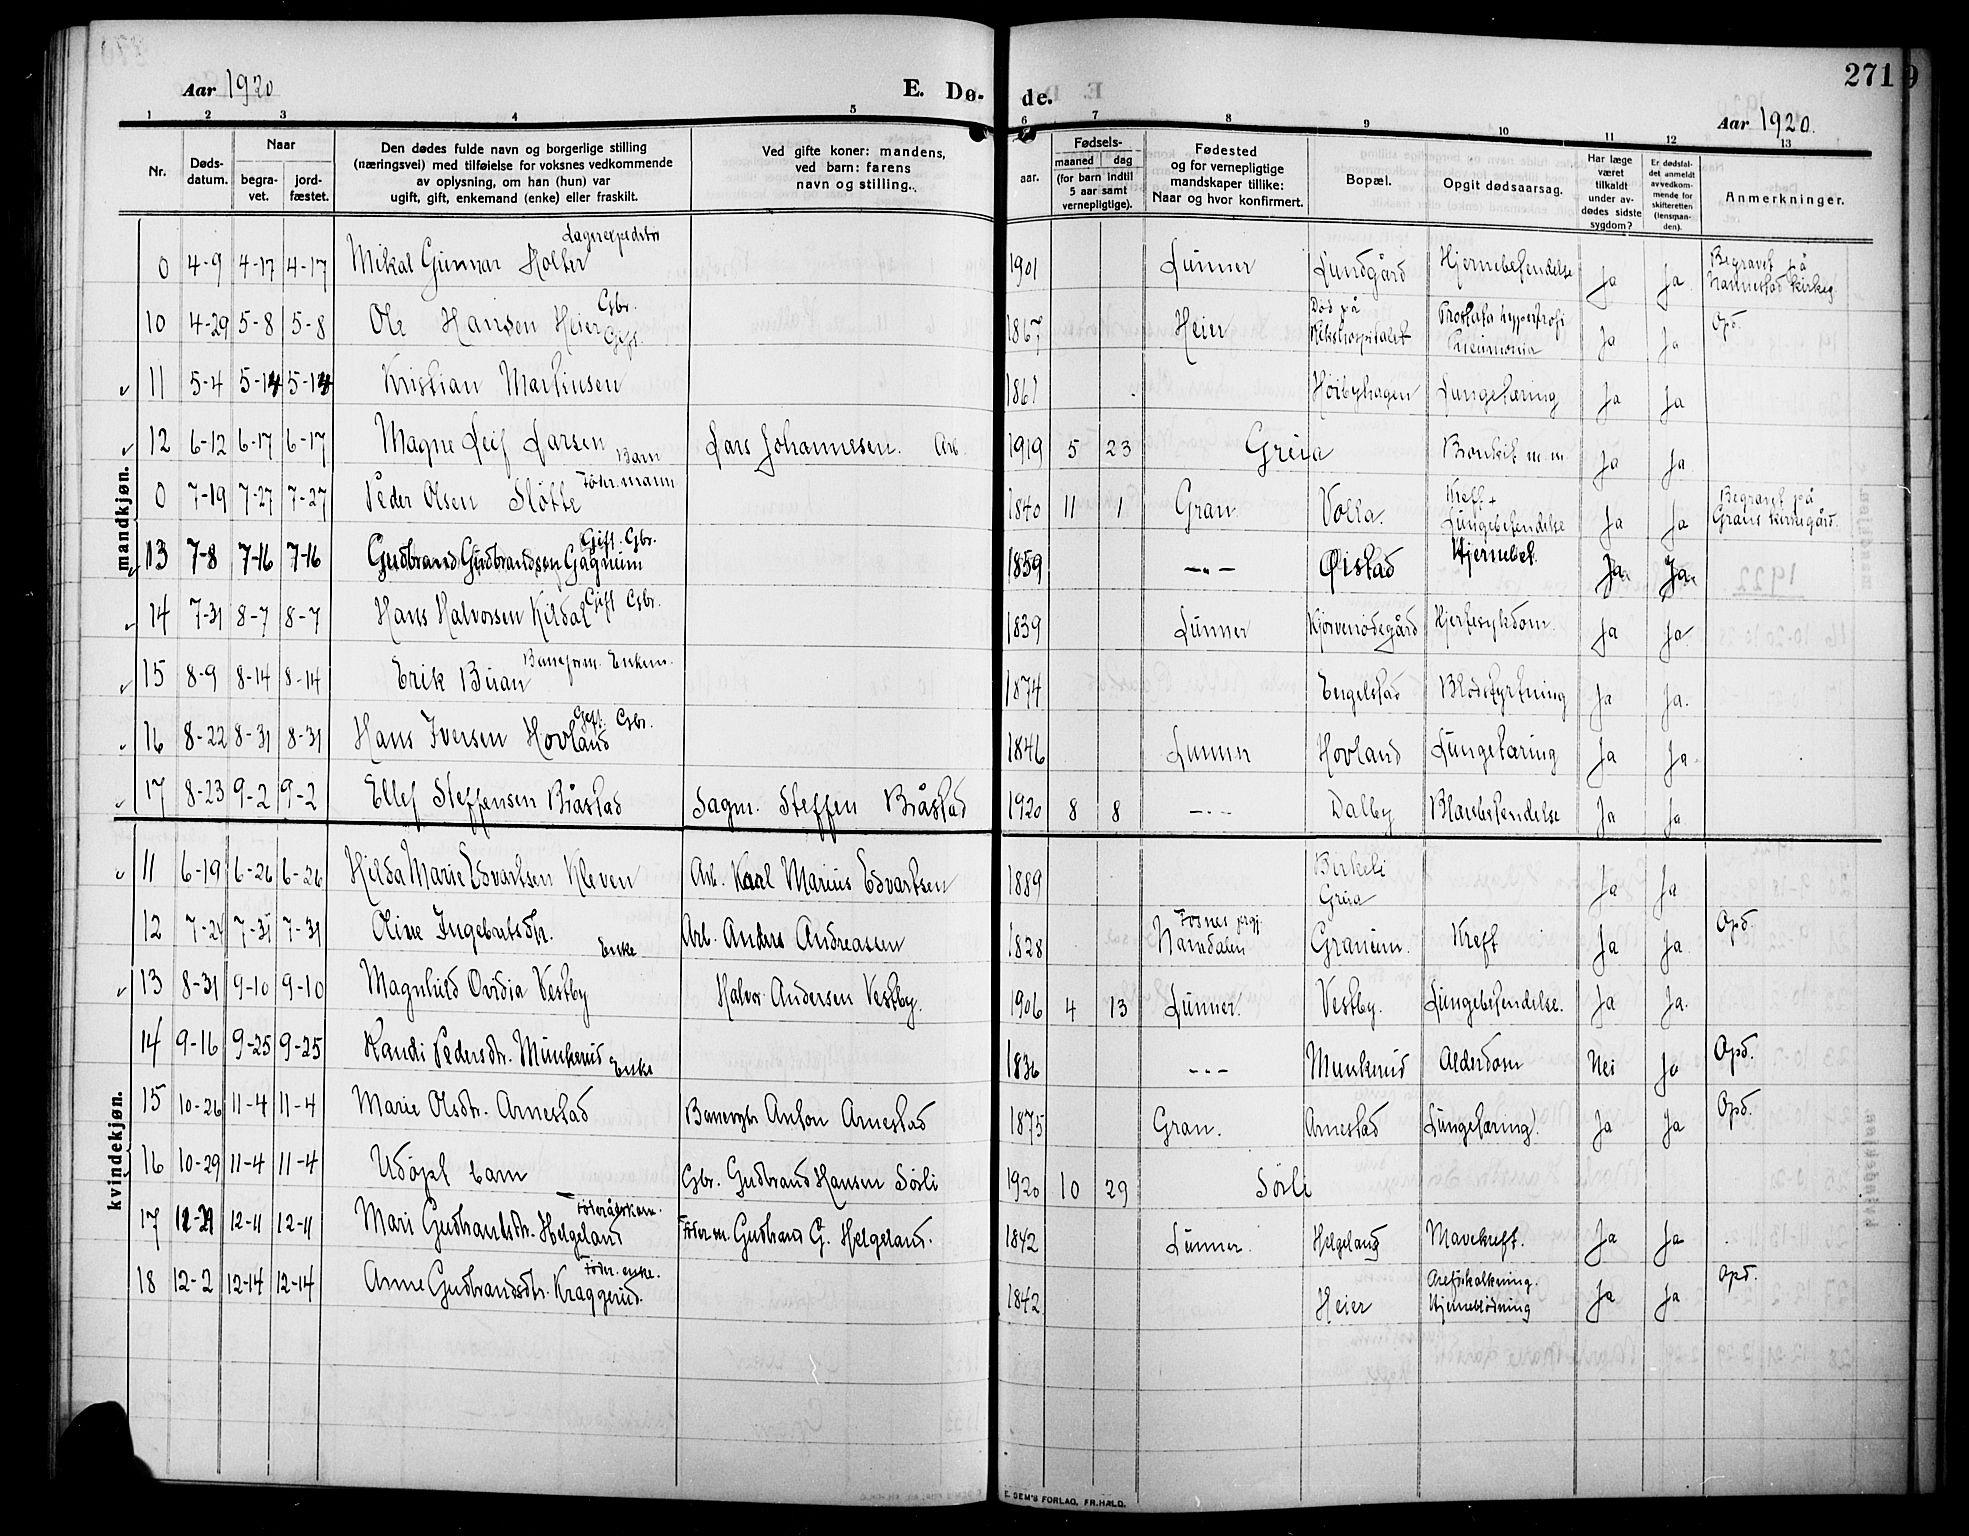 Aar 1920
E. Dø-
de.
271
Aar 1920.
1 2 3 4 5 6 7 8 9 10 11 12 13
Nr.
Døds-
datum.
Naar
begra-
vet.
jord-
fæstet.
Den dødes fulde navn og borgerlige stilling
(næringsvei) med tilføielse for voksnes vedkommende
av oplysning, om han (hun) var
ugift, gift, enkemand (enke) eller fraskilt.
Ved gifte koner: mandens,
ved barn: farens
navn og stilling.
aar.
Fødsels-
maaned dag
(for barn indtil
5 aar samt
vernepligtige).
Fødested
og for vernepligtige
mandskaper tillike:
Naar og hvor konfirmert.
Bopæl.
Opgit dødsaarsag.
Har læge
været
tilkaldt
under av-
dødes sidste
sygdom?
Er dødsfal-
det anmeldt
av vedkom-
mende for
skifteretten
(lensman-
den).
Anmerkninger.
mandkjøn.
0 4-9 4-17 4-17 Mikal Gunnar Holter Lagerexpeditør 1901 Lunner Lundgård Hjernebetendelse Ja Ja Begravet på
Nannestad kirkeg
10 4-29 5-8 5-8 Ole Hansen Heier Gbr. Gift. 1867 Heier Død på
Rikshospitalet Prostata hypertrofi
Pneumonia Ja Ja Opd.
11 5-4 5-14 5-14 Kristian Martinsen 1861 Høibyhagen Lungetæring Ja Ja
12 6-12 6-17 6-17 Magne Leif Larsen Barn Lars Johannessen. Arb. 1919 5 23 Greia Bronkit m.m Ja Ja
0 7-19 7-27 7-27 Peder Olsen Sløtte Føder.mann 1840 11 1 Gran Volla. Kreft +
Lungebetendelse Ja Ja Begravet på
Grans kirkegård.
13 7-8 7-16 7-16 Gudbrand Gudbrandsen Gagnum Gift. Gbr. 1859 -"- Øistad Hjernebet. Ja Ja
14 7-31 8-7 8-7 Hans Halvorsen Kildal Gift Gbr. 1839 Lunner Kjørvenødegård Hjertesykdom. Ja Ja
15 8-9 8-14 8-14 Erik Buan Baneform. Enkem. 1874 Engelstad Blodstyrtning Ja Ja.
16 8-22 8-31 8-31 Hans Iversen Hovland Gift. Gbr. 1846 Lunner Hovland Lungetæring Ja Ja
17 8-23 9-2 9-2 Ellef Steffensen Bråstad Sagm. Steffen Bråstad 1920 8 8 -"- Dalby Blærebetendelse Ja Ja
kvindekjøn.
11 6-19 6-26 6-26 Hilda Marie Edvartsen Kleven Arb. Karl Marius Edvartsen 1889 Birkeli
Greia Ja Ja
12 7-24 7-31 7-31 Oline Ingebretsdtr. Enke Arb. Anders Andreassen 1828 Fosnes prgj.
Namdalen Graneim. Kreft Ja Ja. Opd.
13 8-31 9-10 9-10 Magnhild Ovidia Vestby Halvor Andersen Vestby. 1906 4 13 Lunner. Vestby. Lungebetendelse. Ja Ja.
14 9-16 9-25 9-25 Randi Pedersdtr. Munkerud Enke 1836 -"- Munkerud Alderdom Nei Ja Opd.
15 10-26 11-4 11-4 Marie Olsdtr. Arnestad Banevogtr Anton Arnestad 1875 Gran. Arnestad Lungetæring. Ja Ja Opd.
16 10-29 11-4 11-4 Udøpt barn Gbr. Gudbrand Hansen Sørli 1920 10 29 Sørli
17 12-11 12-11 Mari Gudbrandsdtr. Helgeland Føderådskone. Føderm. Gudbrand G. Helgeland. 1842 Lunner. Helgeland Mavekreft. Ja Ja
18 12-2 12-14 12-14 Anne Gudbrandsdtr. Kraggerud. Føder.enke. 1842 Heier Areforkalkning.
Hjerneblødning Ja Ja Opd.
E. SEM'S FORLAG, FR.HALD.